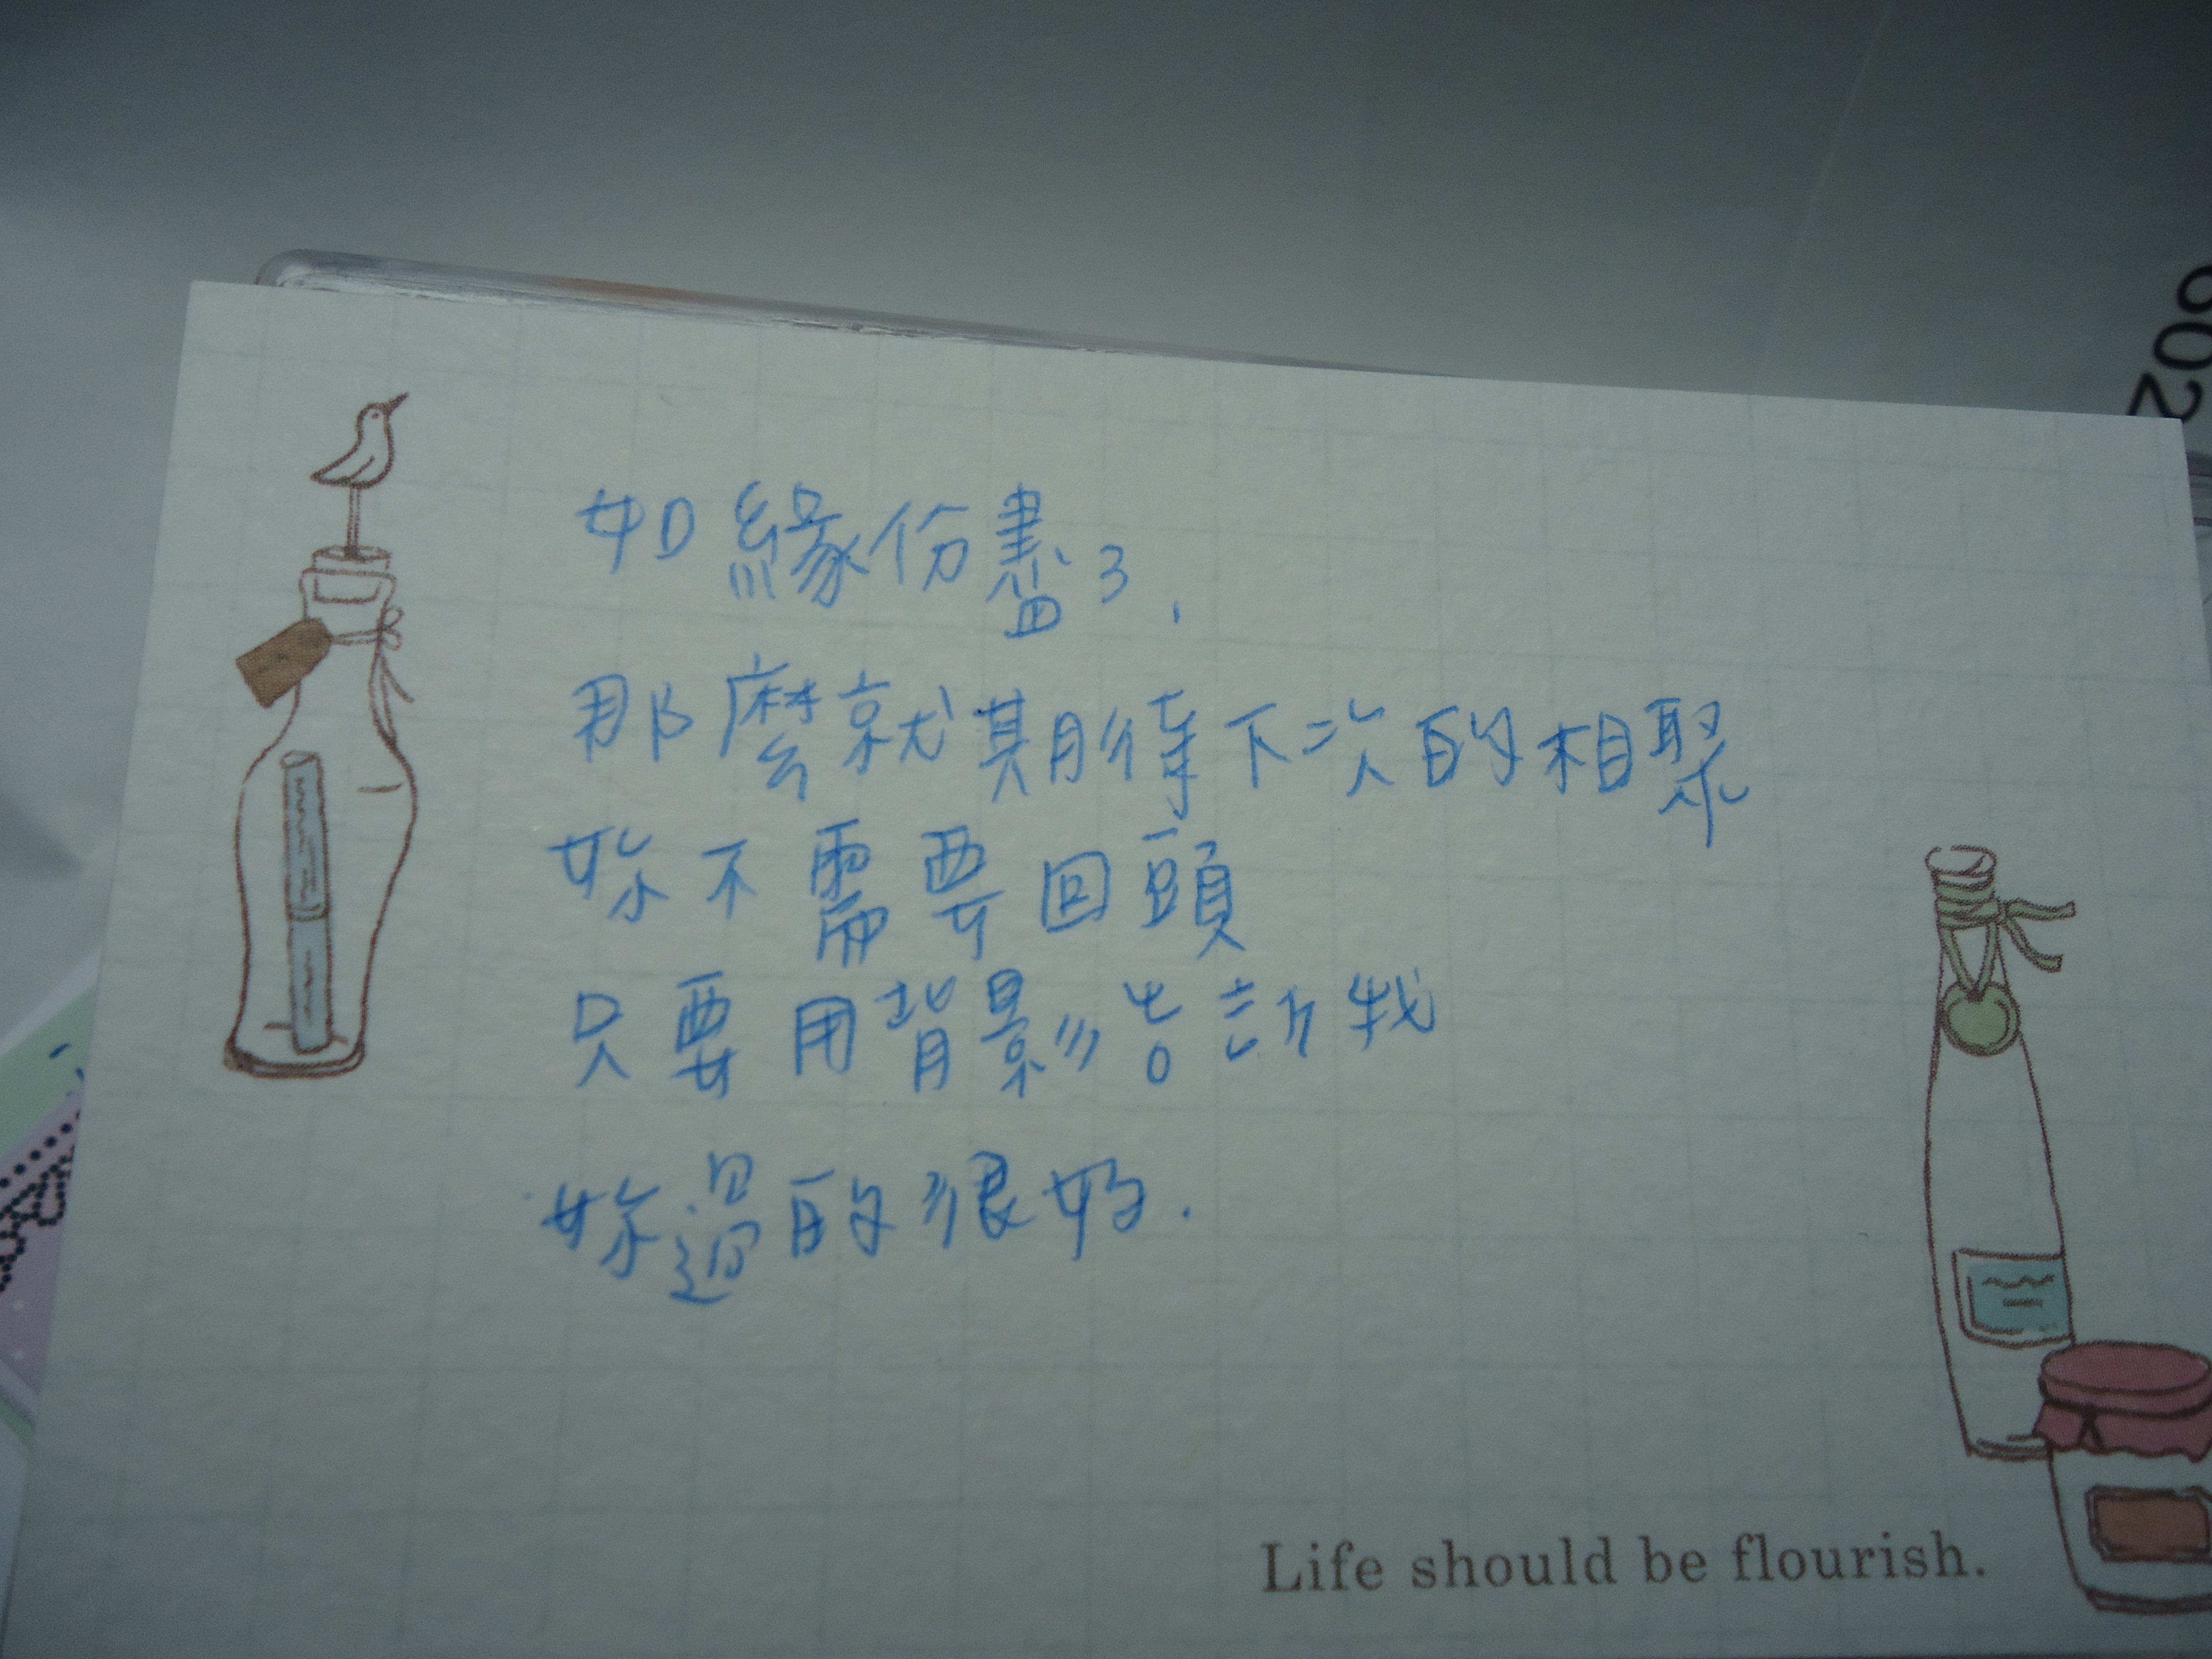 如緣份盡了,
那麼就期待下次的相聚
妳不需要回頭
只要用背影告訴我
妳過的很好.
Life should be flourish.
602